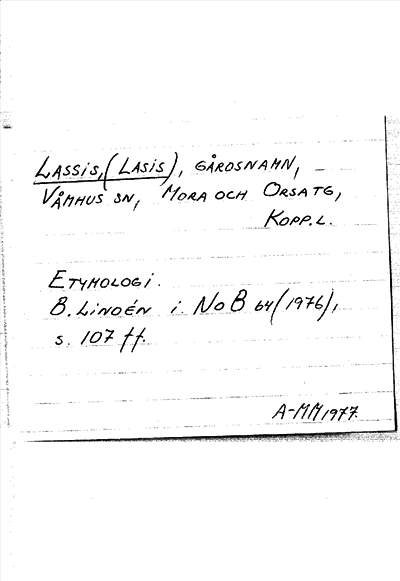 LASSIS, (LASIS), GÅRDSNAMN,
VÅMHUS SN, MORA OCH ORSA TG,
KOPP. L.
ETYMOLOGI.
B. LINDÉN i NoB 64 (1976),
s. 107 ff.
A-MM 1977